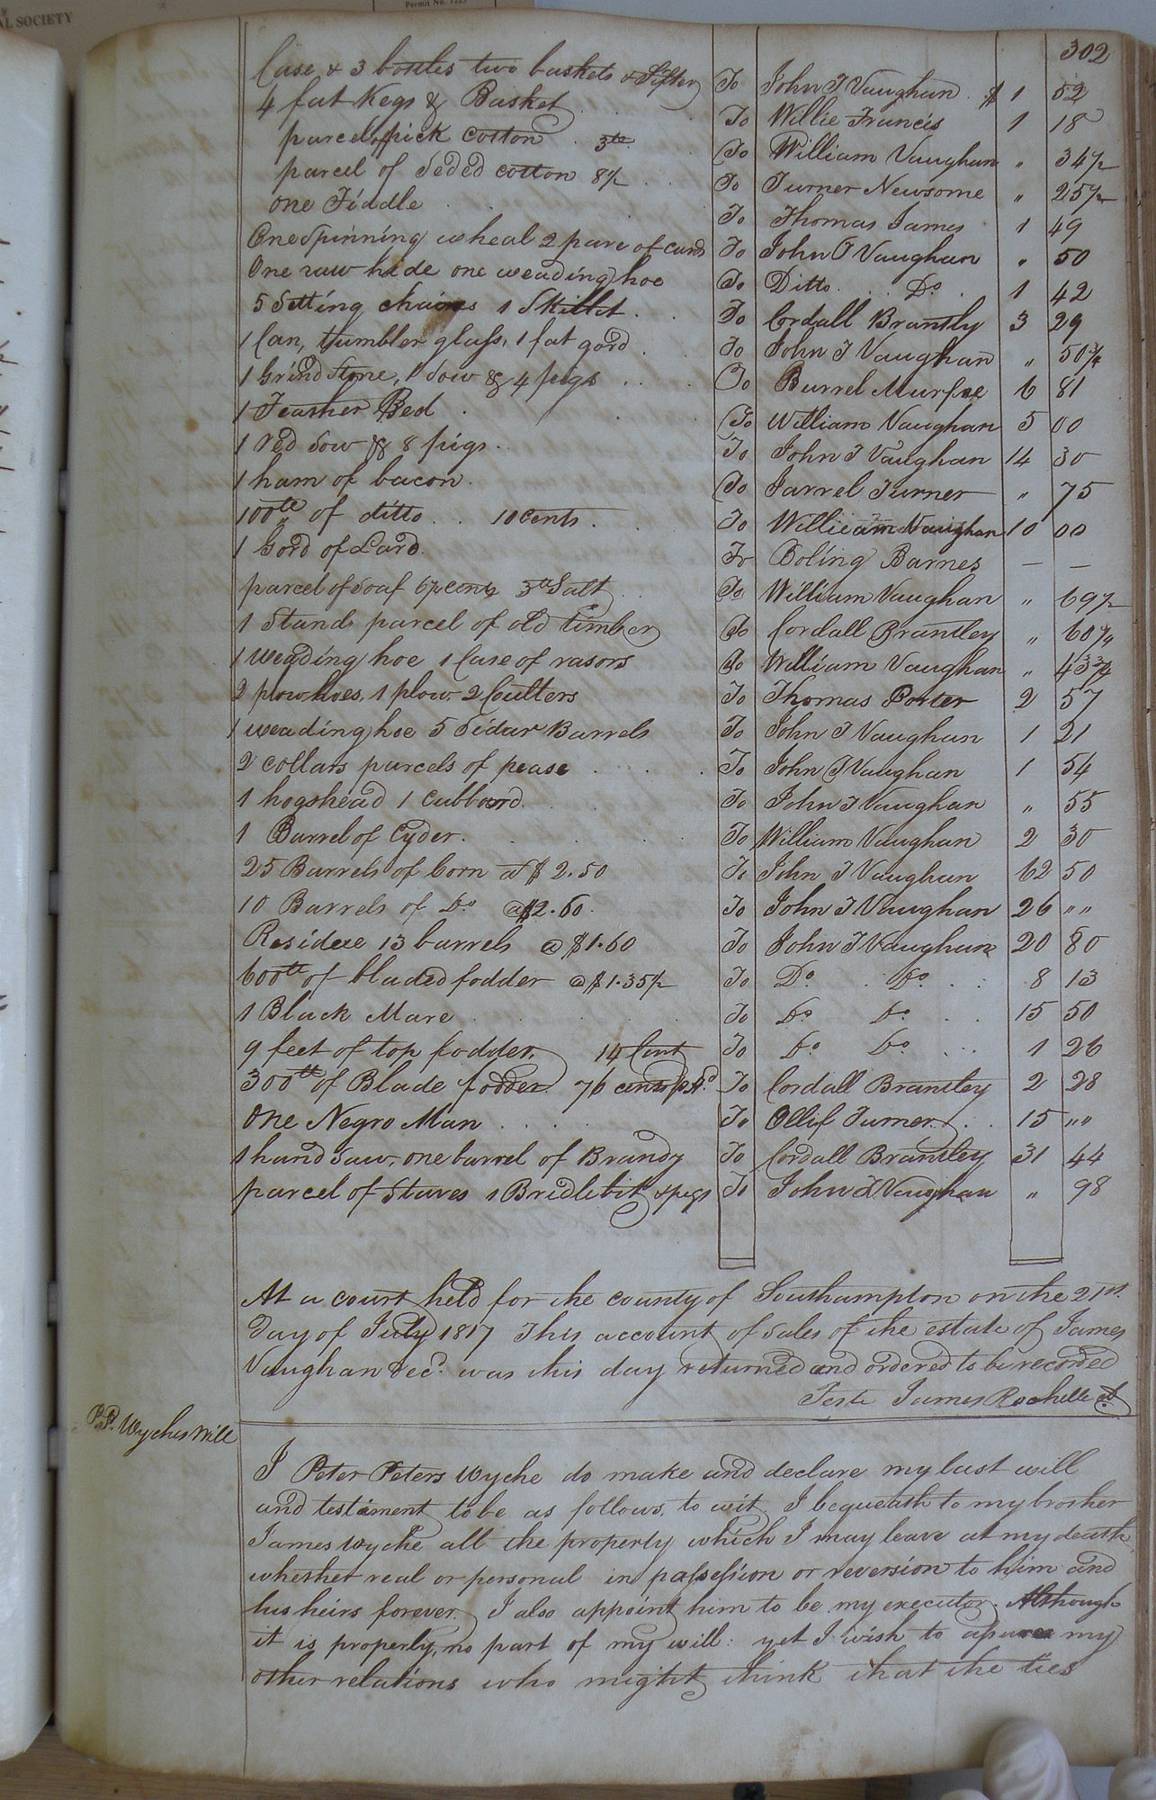 AL SOCIETY
Permit No. 7225
302
Case & 3 bottles two baskets & Sifter To John T Vaughan $ 1 52
4 fat Kegs & Basket To Willie Francis 1 18
parcel of pick cotton 3 To William Vaughan " 34 1/2
parcel of Seded cotton 8 1/2 To Turner Newsome " 25 1/2
one Fiddle To Thomas James 1 49
One Spinning wheal 2 pare of cards To John T Vaughan " 50
One raw hide one weading hoe To Ditto Do 1 42
5 Setting chaires 1 Skillet To Cordall Brantly 3 29
1 Can, tumbler glass, 1 fat gord To John T Vaughan " 50 3/4
1 Grind Stone, 1 Sow & 4 pigs To Burrel Murfee 6 81
1 Feather Bed To William Vaughan 5 00
1 red Sow & 8 pigs To John T Vaughan 14 30
1 ham of bacon To Jarrel Turner " 75
100 lb of ditto 10 Cents To William Vaughan 10 00
1 Gord of Lard To Boling Barnes — —
parcel of Soaf 6 1/2 cents 3 Salt To William Vaughan " 69 1/2
1 Stand parcel of old timber To Cordall Brantley " 60 3/4
1 weading hoe 1 Case of rasors To William Vaughan " 43 3/4
2 plow hoes, 1 plow 2 Coulters To Thomas Porter 2 57
1 weading hoe 5 Sidar Barrels To John T Vaughan 1 21
2 collars parcels of pease To John T Vaughan 1 54
1 hogshead 1 Cubbord To John T Vaughan " 55
1 Barrel of Cyder To William Vaughan 2 30
25 Barrels of Corn at $ 2.50 To John T Vaughan 62 50
10 Barrels of Do @ $2.60 To John T Vaughan 26 " "
Residue 13 barrels @ $1.60 To John T Vaughan 20 80
600 lb of bladed fodder @ $1.35 1/2 To Do Do 8 13
1 Black Mare To Do Do 15 50
9 feet of top fodder 14 Cent To Do Do 1 26
300 lb of Blade fodder 76 cents To Cordall Brantley 2 28
One Negro Man To Ollif Turner 15 " "
1 hand Saw, one barrel of Brandy To Cordall Brantley 31 44
parcel of Staves 1 Bridlebit & pegs To John T Vaughan " 98
At a court held for the county of Southampton on the 21st
day of July 1817 This account of Sales of the estate of James
Vaughan decd. was this day returned and ordered to be recorded
Teste James Rochelle
P. P. Wyches Will
I Peter Peters Wyche do make and declare my last will
and testament to be as follows, to wit, I bequeath to my brother
James Wyche all the property which I may leave at my death
whether real or personal in possession or reversion to him and
his heirs forever. I also appoint him to be my executor. Although
it is properly, no part of my will: yet I wish to my
other relations who might think that the ties